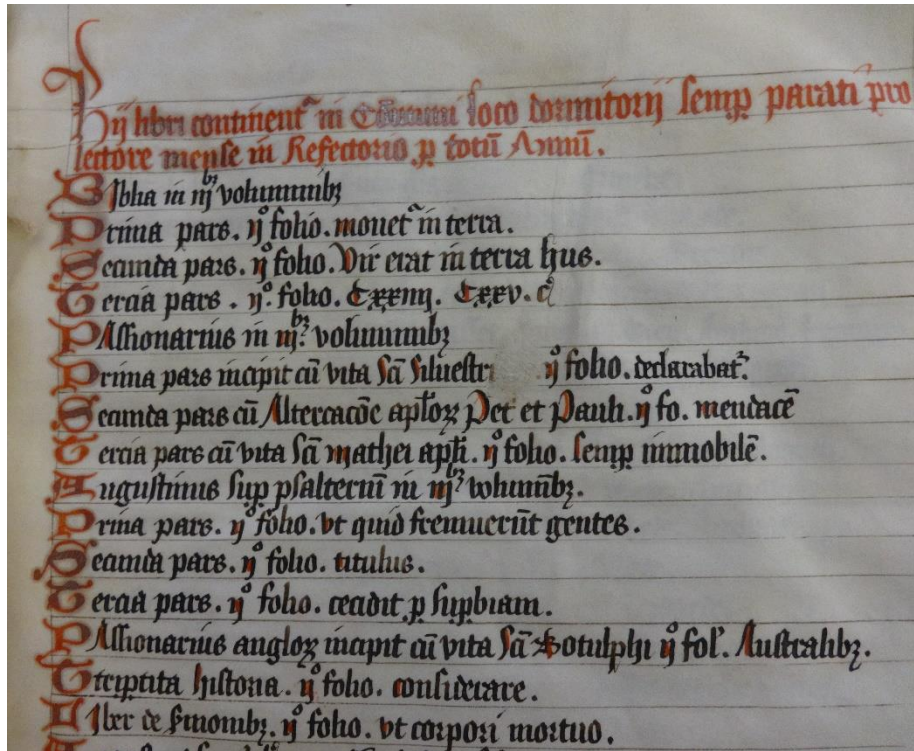 Hij libri continent̃ in Cõmuni loco dormitorij semꝑ parati pro
lectore mense in Refectorio ꝑ totũ Annũ.
Biblia in iijbꝫ voluminibꝫ
Prima pars. ijº folio. monet̃ in terra.
Secunda pars. ijº folio. Vir erat in terra hus.
Tercia pars. ijº. folio. Cxxiiij. Cxxv. c
PAssionarius in iijbꝫ voluminibꝫ
Prima pars incipit cũ vita Sc̃i Siluestri ijº folio. declarabat̃.
Secunda pars cũ Altercac̃õe apl̃oꝝ Pet et Pauli. ijº fo. mendacẽ
Tercia pars cũ vita Sc̃i mathei apl̃i. ijº folio. semꝑ immobilẽ.
Augustinus suꝑ psalteriũ in iijbꝫ volum̃ibꝫ.
Prima pars. ijº folio. vt quid fremuerũt gentes.
Secunda pars. ijº folio. titulus.
Tercia pars. ijº folio. cecidit ꝑ suꝑbiam.
PAssionarius angloꝝ incipit cũ vita Sc̃i Botulphi ijº fol'. Australibꝫ.
Triptita historia. ijº folio. considerare.
LIber de Sm̃onibꝫ. ijº folio. vt corpori mortuo.